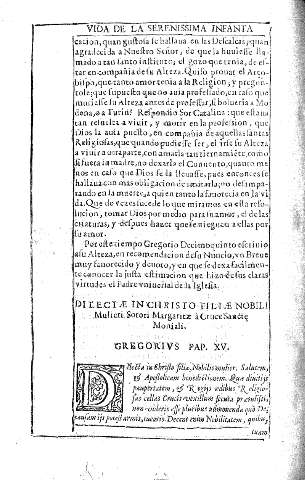 VIDA DE LA SERENISSIMA INFANTA
cacion, quan gustosa se hallaua en las Descalças, quan
agradecida a Nuestro Señor, de que la huuiesse lla-
mado a tan santo instituto; el gozo que tenia, de es-
tar en compañia de su Alteza. Quiso prouar el Arço-
bispo, que tanto amor tenia a la Religion, y pregun-
tole; que supuesto que no auia professado, en caso que
muriesse su Alteza antes de professar, si bolueria a Mo-
dena, o a Turin? Respondio Sor Catalina: que estaua
tan resuelta a viuir, y morir en la profession, que
Dios la auia puesto, en compañia de aquellas santas
Religiosas, que quando pudiesse ser, el irse su Alteza,
a viuir a otra parte, con amarla tan tiernamente, como
si fuera su madre, no dexaria el Conuento, quanto me-
nos en caso que Dios se la lleuasse, pues entonces se
hallaua con mas obligacion de imitarla; no desampa-
rando en la muerte, a quien tanto la fauorecia en la vi-
da. Que de vezes sucede lo que miramos en esta reso-
lucion, tomar Dios por medio para si amar, el de las
criaturas, y despues hazer que se nieguen a ellas por
su amor.
Por este tiempo Gregorio Decimoquinto escriuio
a su Alteza, en recomendacion de su Nuncio, vn Breue
muy fauorecido y deuoto, y en que se dexa facilmen-
te conocer la justa estimacion que hizo de sus claras
virtudes el Padre vniuersal de la Iglesia.
DILECTÆ IN CHRISTO FILIÆ NOBILI
Mulieri, Sorori Margaritæ à Cruce Sanctę
Moniali.
GREGORIVS PAP. XV.
Dilecta in Christo filia, Nobilis mulier. Salutem,
& Apostolicam benedictionem. Quæ diuitijs
paupertatem, & Regijs ædibus Religio-
sas cellas Crucis vexillum secuta præ tulisti,
non videris esse pluribus admonenda quò De-
causam ipsi potes armis, tuearis. Decet enim Nobilitatem, quibus
tuam